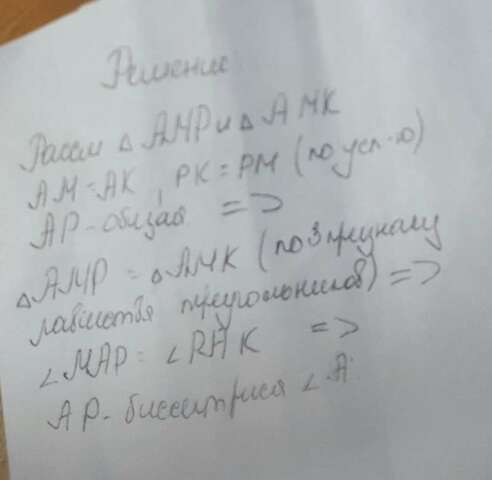 Решение
Рассм △ AMP и △ AMK
AM = AK, PK = PM (по усл-ю)
AP - общая =>
△AMP = △AMK (по 3 признаку
равенства треугольников) =>
∠MAP = ∠PAK =>
AP - биссектриса ∠A